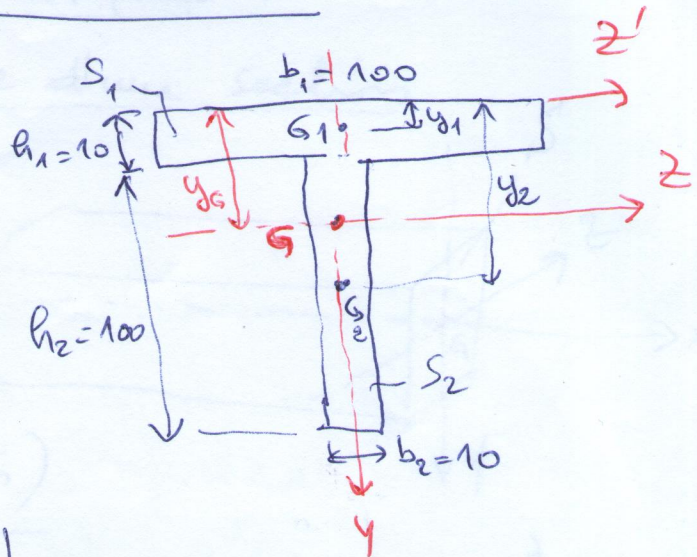 z'
S₁
b₁ = 100
h₁=10
G₁
y₁
y_G
y₂
z
G
h₂=100
G₂
S₂
b₂=10
y